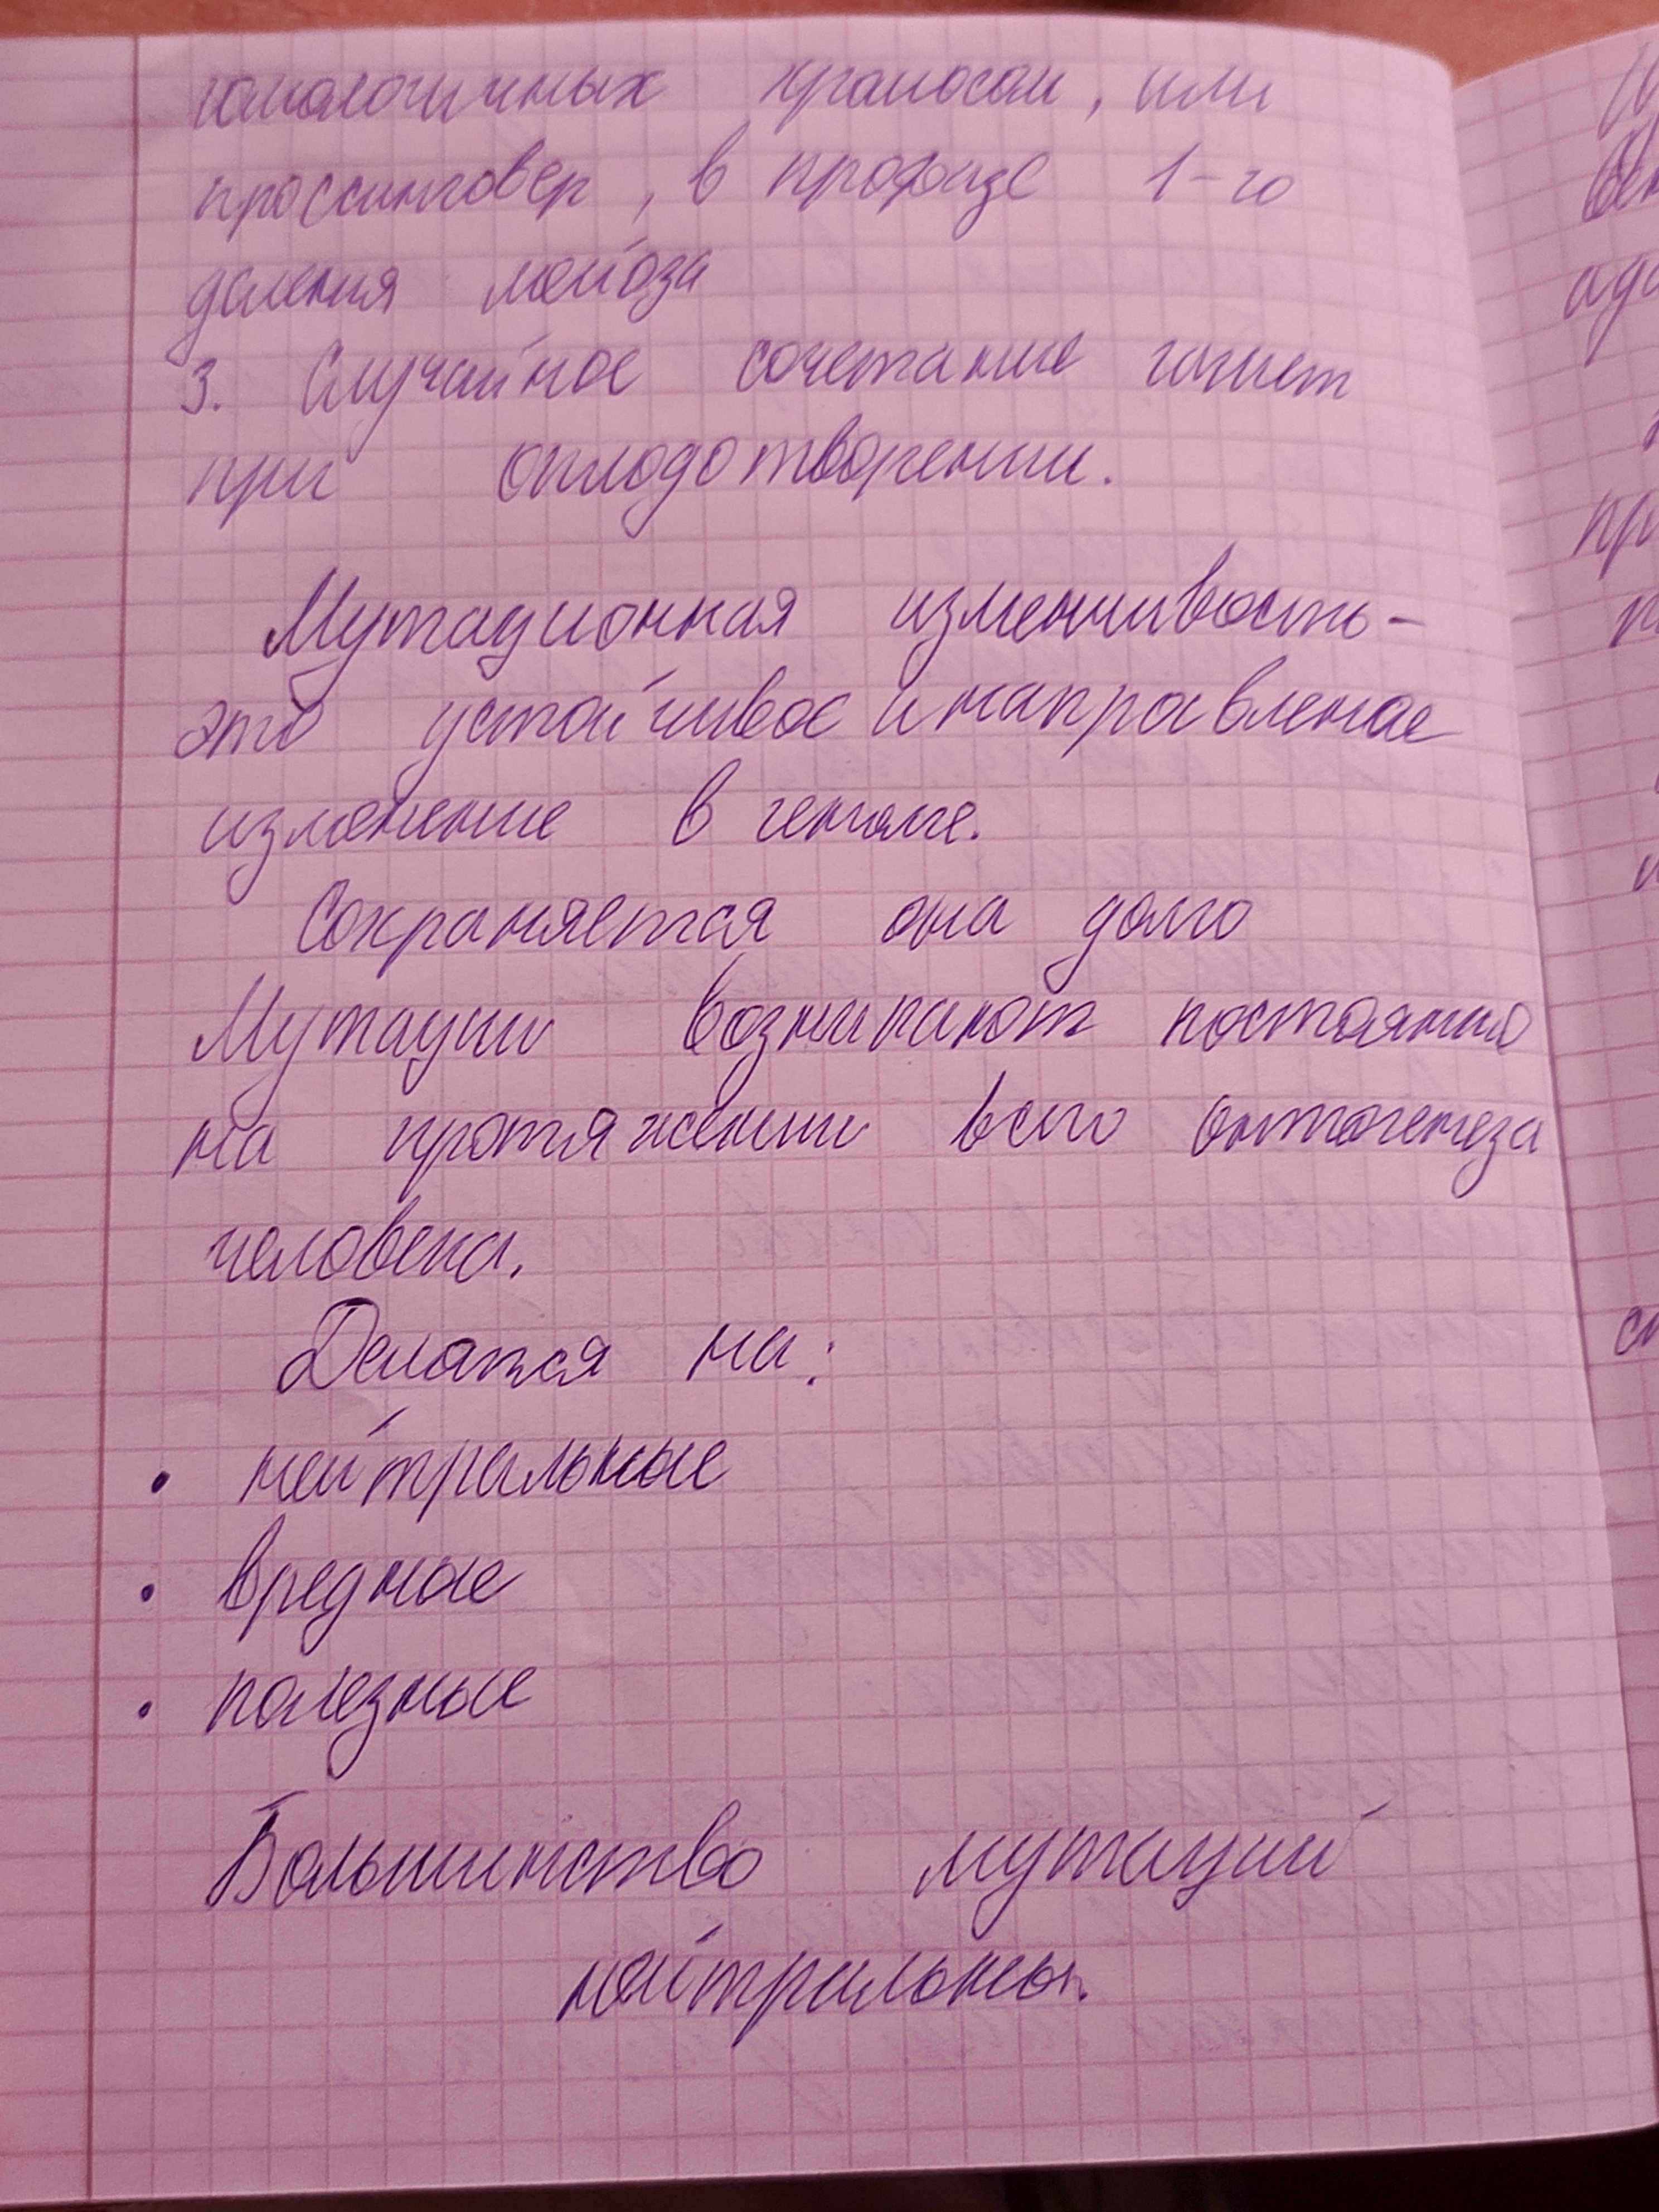 гомологичных хромосом, или
кроссинговер, в профазе 1-го
деления мейоза
3. Случайное сочетание гамет
при оплодотворении.
Мутационная изменчивость-
это устойчивое и направленое
изменение в геноме.
Сохраняется она долго
Мутации возникают постоянно
на протяжении всего онтогенеза
человека.
Делятся на:
• нейтральные
• вредные
• полезные
Большинство мутаций
нейтральны.